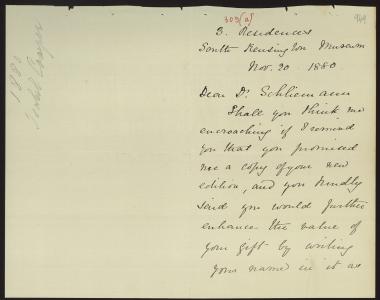 303(a)
949
3. Residences
South Kensington Museum
Nov. 20. 1880
Dear Dr. Schliemann
Shall you think me
encroaching if I remind
you that you promised
me a copy of your new
edition, and you kindly
said you would further
enhance the value of
your gift by writing
your name in it as
1880